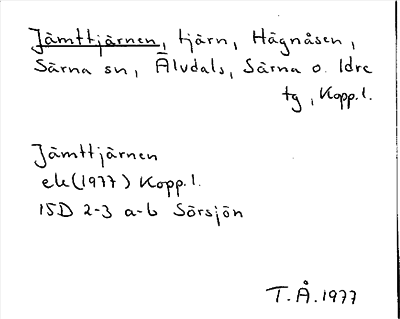 Jämttjärnen, tjärn, Hägnåsen,
Särna sn, Älvdals, Särna o. Idre
tg, Kopp.l.
Jämttjärnen
ek (1977) Kopp.l.
15D 2-3 a-b Sörsjön
T.Å.1977